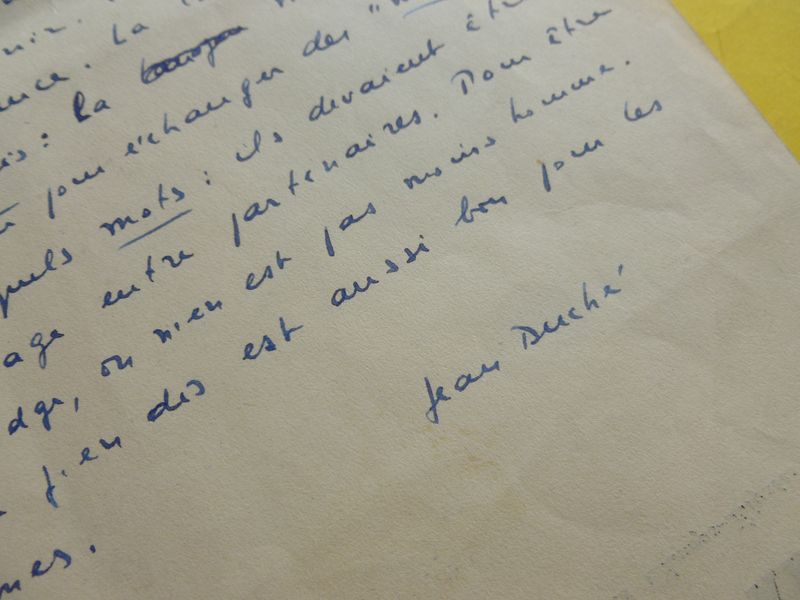 la
: la
pour échanger des "
mots : ils devaient être
age entre partenaires. Pour être
dge, on n'en est pas moins homme.
j'en dis est aussi bon pour les
mes.
Jean Duché